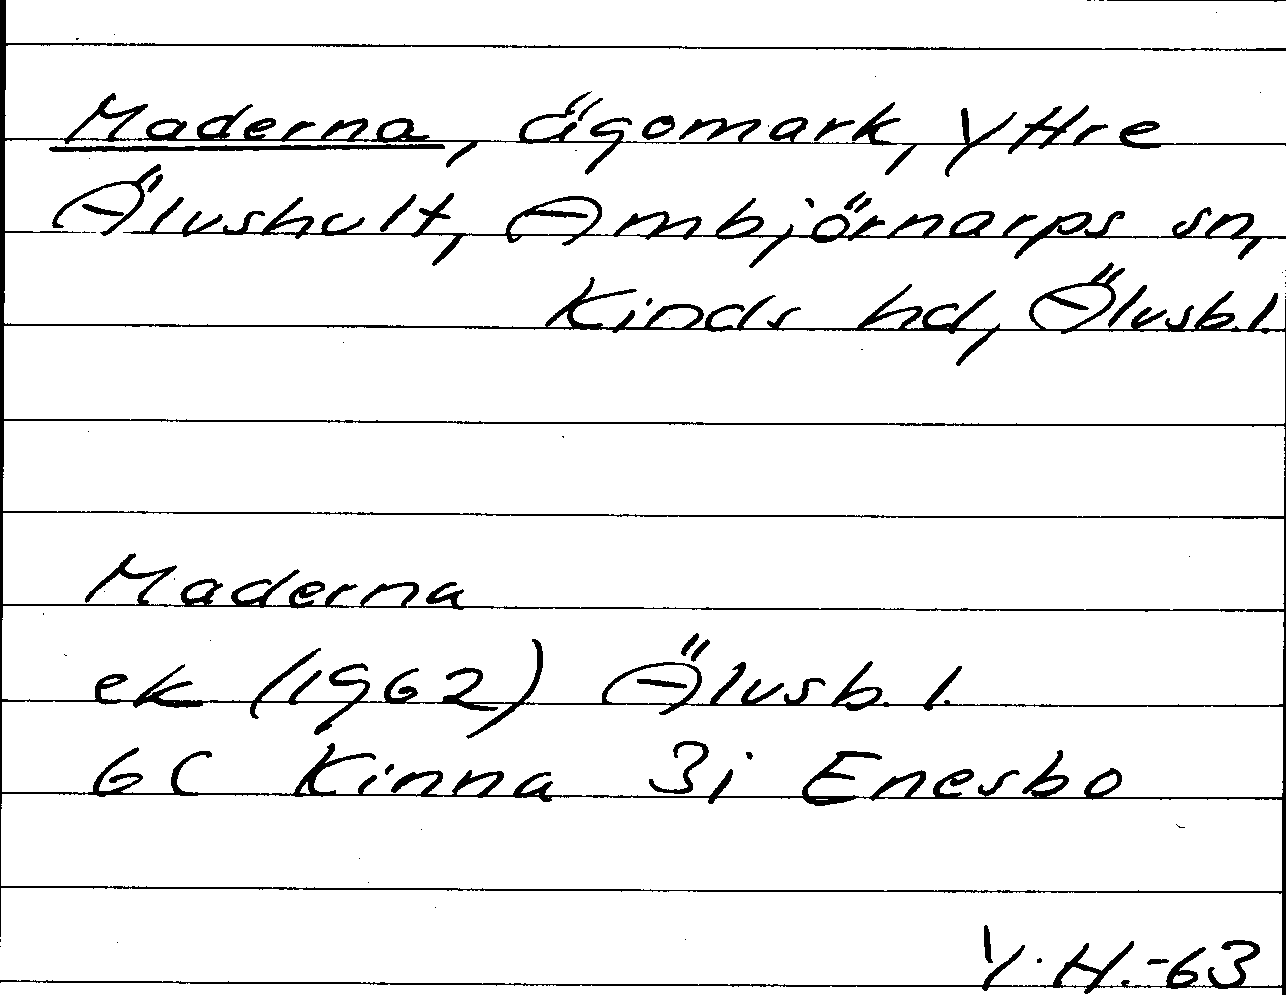 Maderna, ägomark, Yttre
Älvshult, Ambjörnarps sn,
Kinds hd, Älvsb.l.
Maderna
ek (1962) Älvsb. l.
6C Kinna 3i Enesbo
Y.H.-63